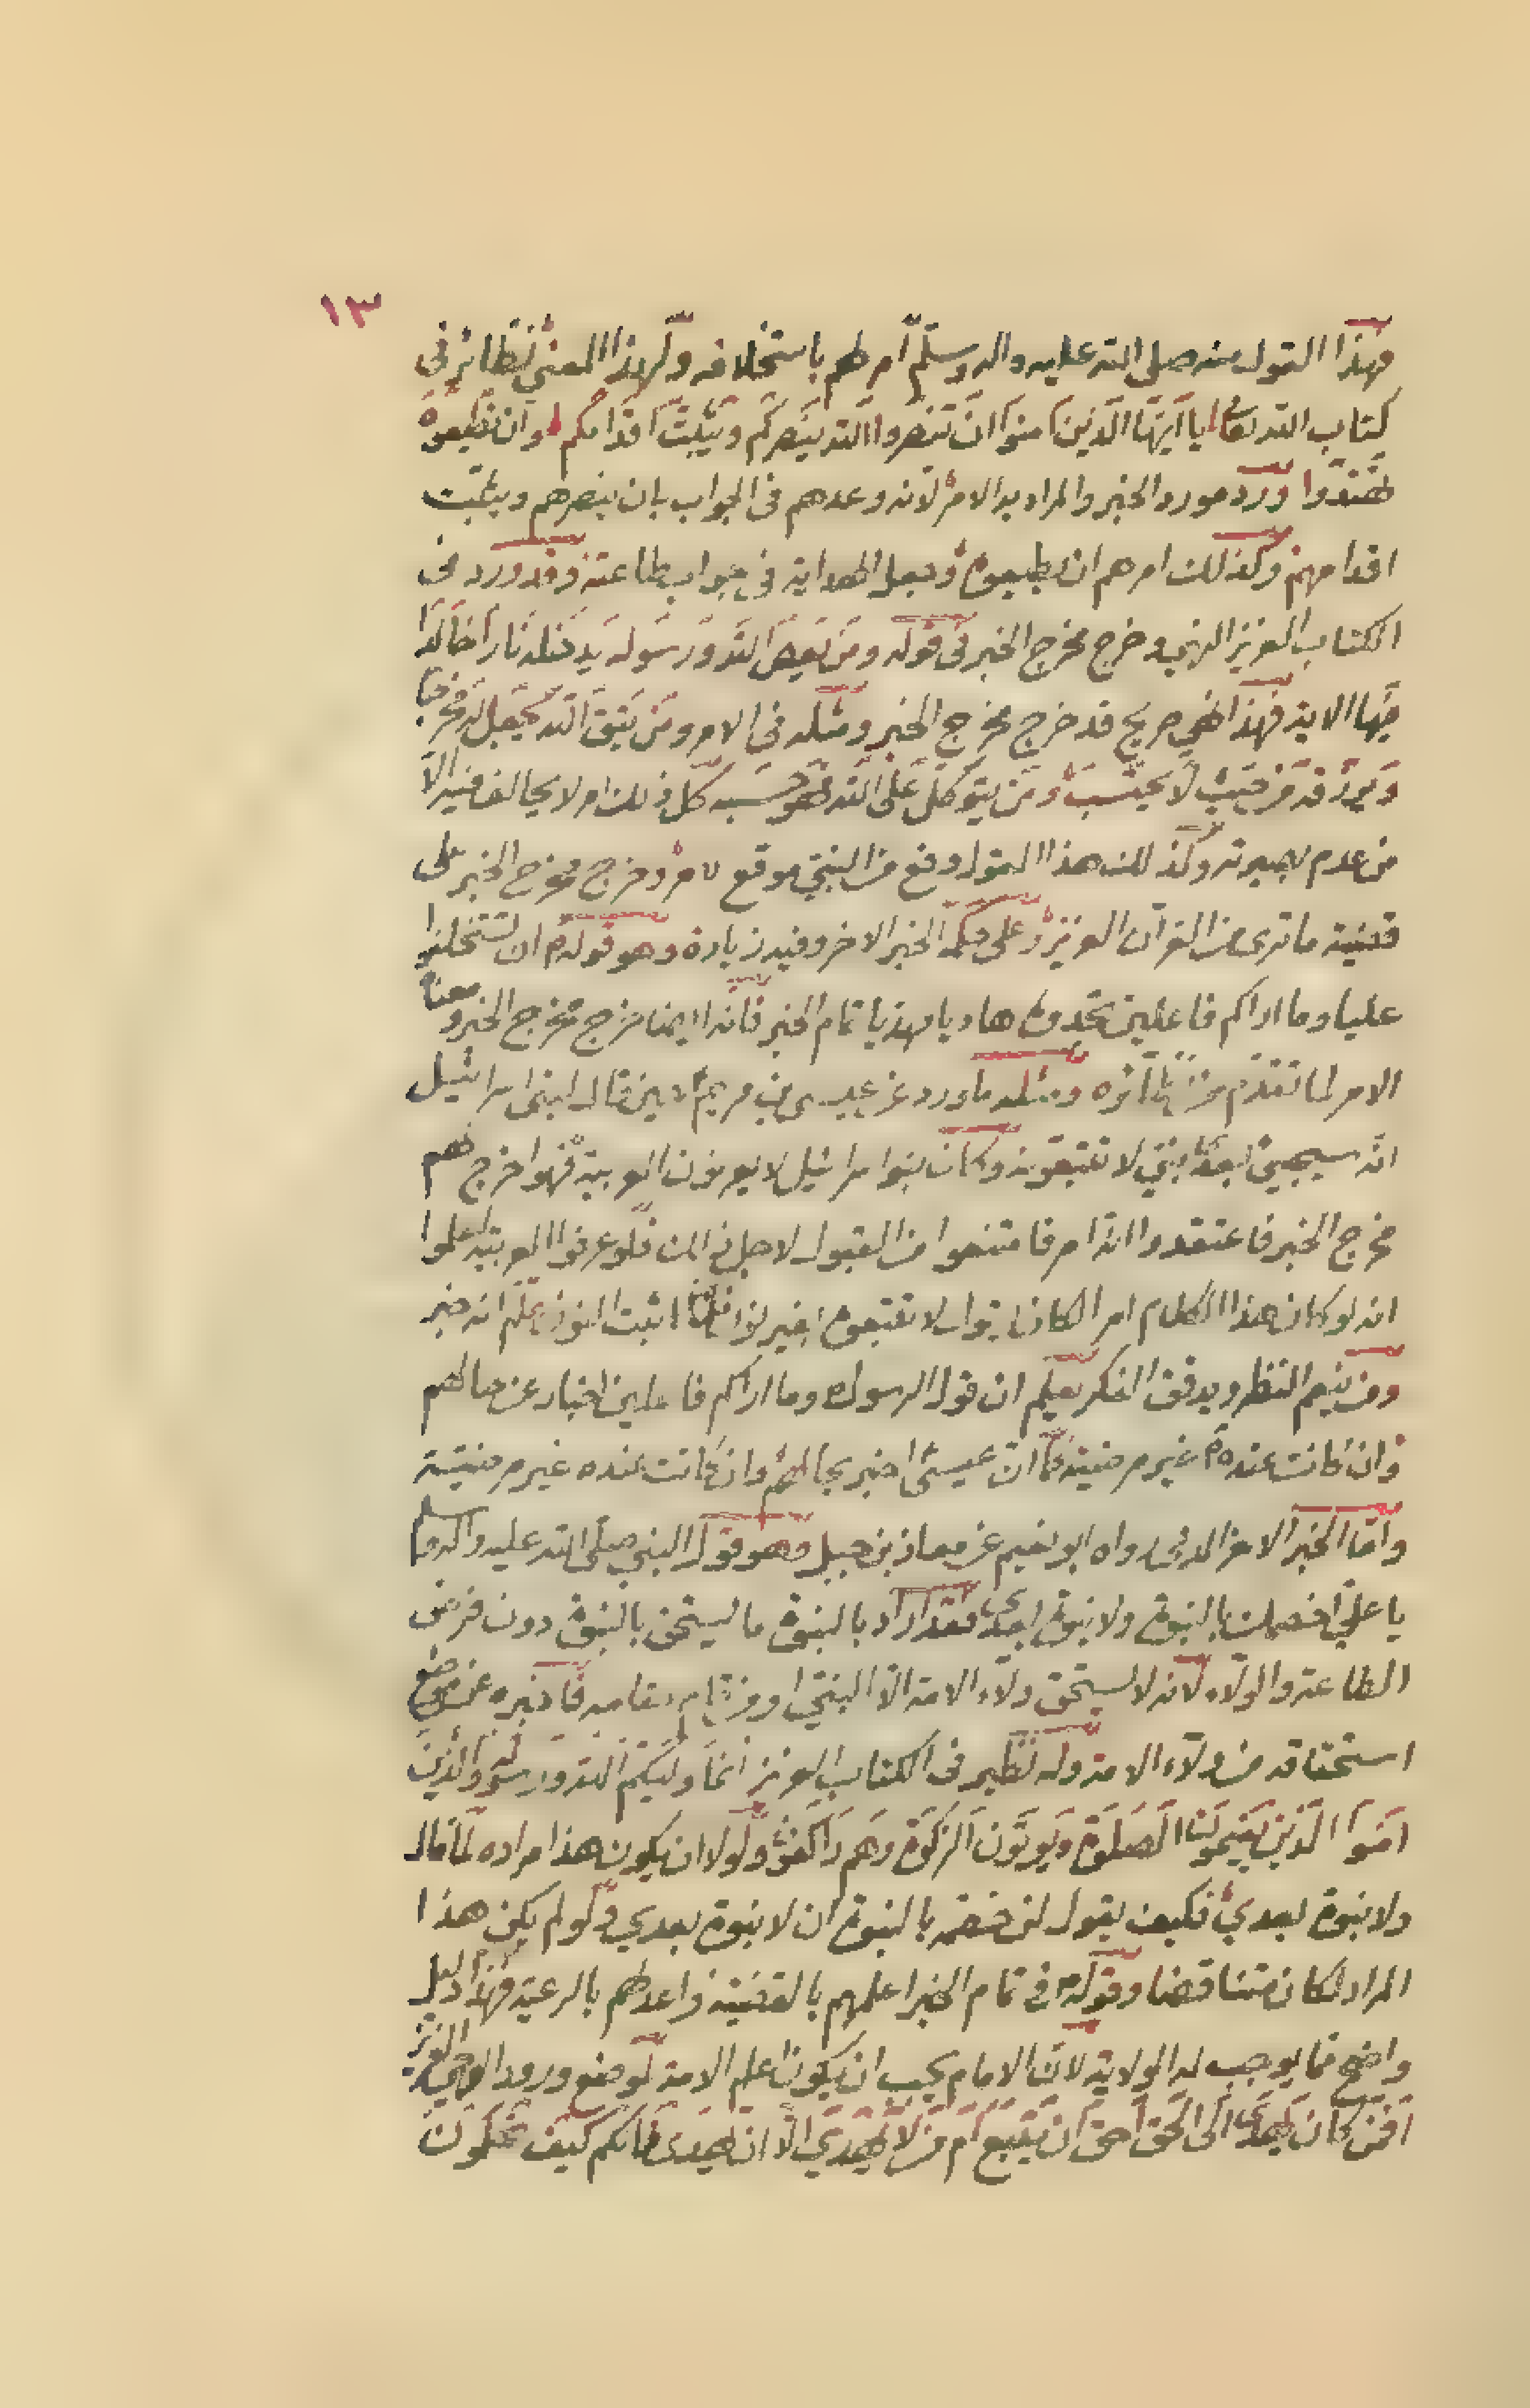 ١٣
فهذا القول منه صلى الله عليه واله وسلّم أمر لهم باستخلافه ولهذا المعنى نظائر في
كتاب الله تعا يا ايّها الّذين امنوا ان تنصروا الله ينصركم ويثبّت اقدامكم وان تطيعوه
تهتدوا ورد مورد الخبر والمراد به الامر لانه وعدهم في الجواب بان ينصرهم ويثبّت
اقدامهم وكذلك امرهم ان يطيعوه وجعل الهداية في جواب طاعته وقد ورد في
الكتاب العزيز النهي وخرج مخرج الخبر في قوله ومن يعص الله ورسوله يدخله نارا خالدا
فيها الاية فهذا نهي صريح قد خرج مخرج الخبر ومثله في الامر ومن يتق الله يجعل له مخرجا
ويرزقه من حيث لا يحتسب ومن يتوكل على الله فهو حسبه كل ذلك امر لا يخالف فيه الا
من عدم بصيرته وكذلك هذا القول وقع من النبي موقع الامر وخرج مخرج الخبر على
قضية ما ترى من القران العزيز وعلى حكم الخبر الاخر وفيه زيادة وهو قوله ان تستخلفوا
عليا وما اراكم فاعلين تجدوه هاديا مهديا تمام الخبر فانه ايضا خرج مخرج الخبر ومعناه
الامر لما تقدم من نظائره ومثله ما ورد عن عيسى بن مريم حين قال لبني اسرائيل
انه سيجيئ بعدي نبي لا تتبعونه وكان بنوا اسرائيل لا يعرفون العربية فهو اخرج لهم
مخرج الخبر فاعتقدوا انه امر فامتنعوا من القبول لاجل ذلك فلو عرفوا العربية لعلموا
انه لو كان هذا الكلام امرا لكان يقول لا تتبعوه بغير نون فلما اثبت النون علم انه خبر
ومن ينعم النظر ويدقق الفكر يعلم ان قول الرسول وما اراكم فاعلين اخبار عن حالهم
وان كانت عنده غير مرضية كما ان عيسى اخبر بحالهم وان كانت عنده غير مرضية
وامّا الخبر الاخر الذي رواه ابو نعيم عن معاذ بن جبل وهو قول النبي صلى الله عليه واله وسلم
يا علي اخصمك بالنبوة ولا نبوة بعدي فقد اراد بالنبوة ما يستحق بالنبوة دون فرض
الطاعة والولاء لانه لا يستحق ولاء الامة الا النبي او من قام مقامه فاخبره عن موضع
استحقاقه من ولاء الامة وله نظير في الكتاب العزيز انما وليكم الله ورسوله والذين
امنوا الذين يقيمون الصلوة ويؤتون الزكوة وهم راكعون ولولا ان يكون هذا مراده لما قال
ولا نبوة بعدي فكيف يقول لمن خصمه بالنبوة ان لا نبوة بعدي ولو لم يكن هذا
المراد لكان متناقضا وقوله في تمام الخبر اعلمهم بالقضية واعدلهم بالرعية فهذا دليل
واضح فيما يوجب له الولاية لان الامام يجب ان يكون اعلم الامة لموضع ورود الوحي العزيز
افمن كان يهدي الى الحق احق ان يتبع ام من لا يهدي الا ان يهدى فمالكم كيف تحكمون